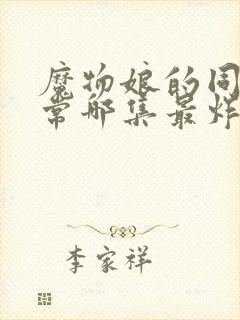 魔物娘的同
常哪集最炸
李家祥